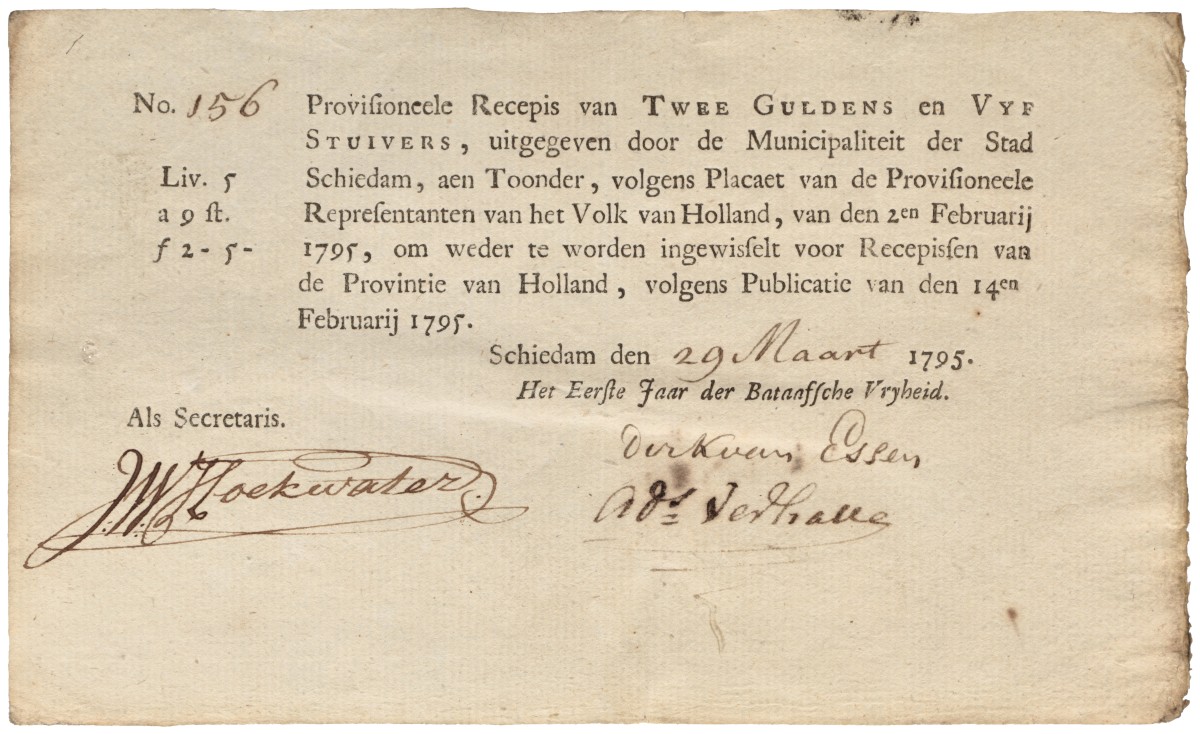 No. 156 Provisioneele Recepis van TWEE GULDENS en VYF
STUIVERS, uitgegeven door de Municipaliteit der Stad
Liv. 5 Schiedam, aen Toonder, volgens Placaet van de Provisioneele
a 9 st. Representanten van het Volk van Holland, van den 2en Februarij
f 2 - 5 - 1795, om weder te worden ingewisselt voor Recepissen van
de Provintie van Holland, volgens Publicatie van den 14en
Februarij 1795.
Schiedam den 29 Maart 1795.
Het Eerste Jaar der Bataafsche Vryheid.
Als Secretaris.
Dirk van Essen
J.W. Hoekwater
Ads